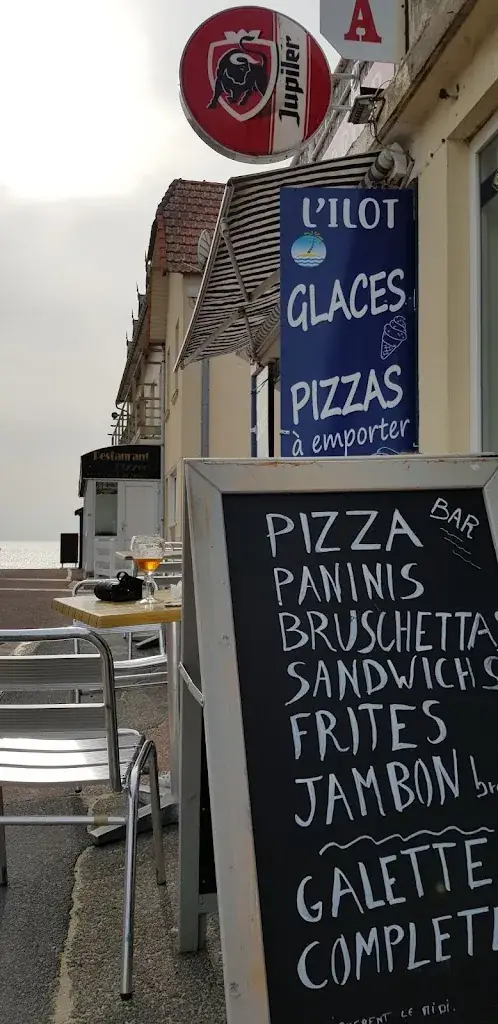 Jupiler
A
L'ILOT
GLACES
PIZZAS
à emporter
Restaurant
BAR
PIZZA
PANINIS
BRUSCHETTA
SANDWICHS
FRITES
JAMBON
GALETTE
COMPLET
LE MIDI.